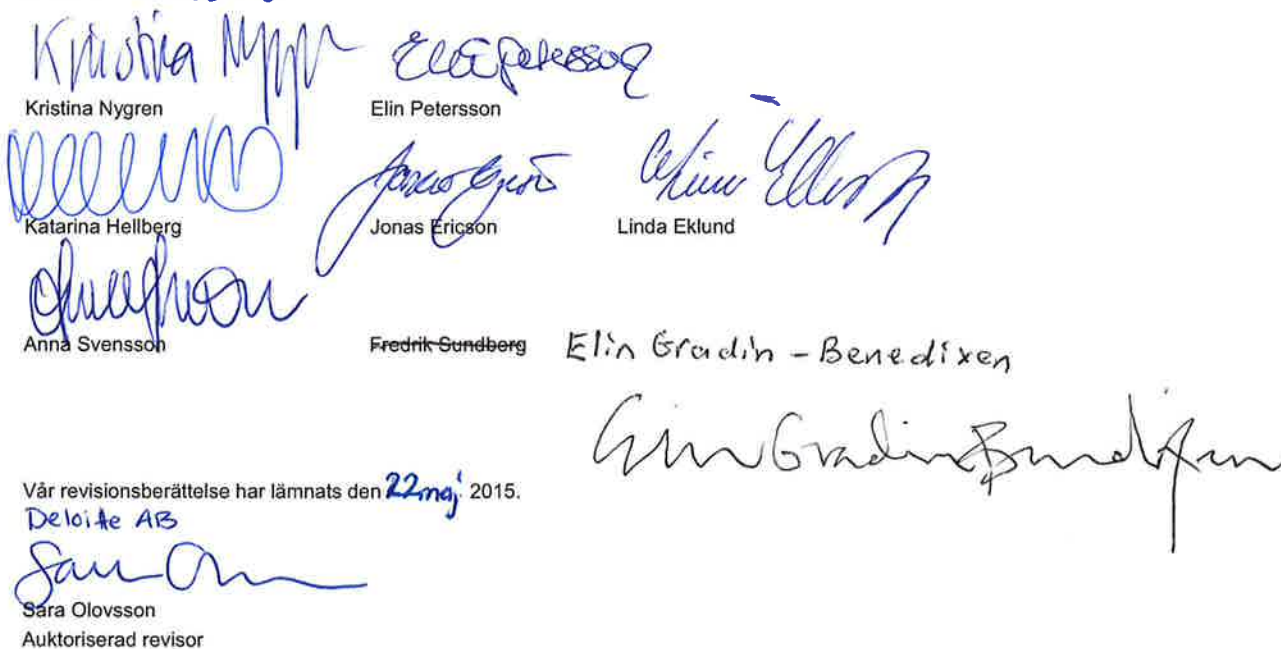 Kristina Nygren Elin Petersson
Kristina Nygren Elin Petersson
Katarina Hellberg Jonas Ericson Linda Eklund
Anna Svensson Fredrik Sundberg Elin Gradin - Benedixen
Elin Gradin Benedixen
Vår revisionsberättelse har lämnats den 22 maj 2015.
Deloitte AB
Sara Olovsson
Auktoriserad revisor